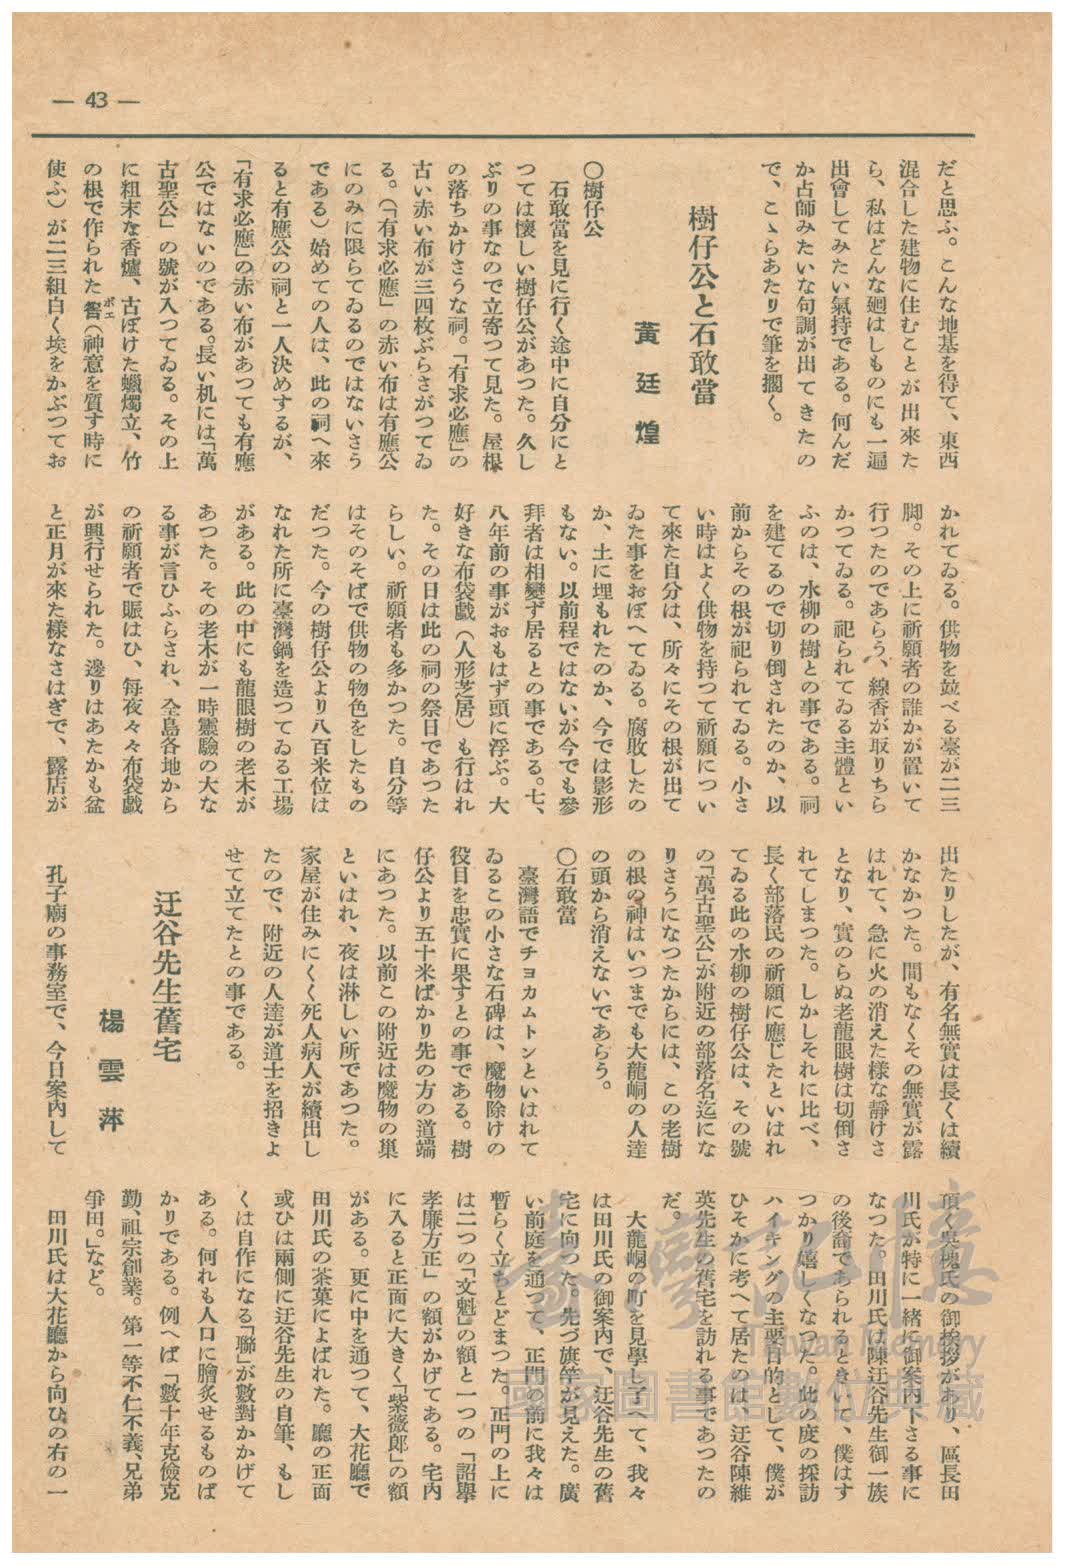 — 43 —
だと思ふ。こんな地基を得て、東西
混合した建物に住むことが出來た
ら、私はどんな廻はしものにも一遍
出會してみたい氣持である。何んだ
か占師みたいな句調が出てきたの
で、こゝらあたりで筆を擱く。
樹仔公と石敢當
黃廷煌
〇樹仔公
石敢當を見に行く途中に自分にと
つては懷しい樹仔公があつた。久し
ぶりの事なので立寄つて見た。屋根
の落ちかけさうな祠。「有求必應」の
古い赤い布が三四枚ぶらさがつてゐ
る。(「有求必應」の赤い布は有應公
にのみに限らてゐるのではないさう
である)始めての人は、此の祠へ來
ると有應公の祠と一人決めするが、
「有求必應」の赤い布があつても有應
公ではないのである。長い机には「萬
古聖公」の號が入つてゐる。その上
に粗末な香爐、古ぼけた蠟燭立、竹
の根で作られた筶ポエ(神意を質す時に
使ふ)が二三組白く埃をかぶつてお
かれてゐる。供物を竝べる臺が二三
脚。その上に祈願者の誰かが置いて
行つたのであらう、線香が取りちら
かつてゐる。祀られてゐる主體とい
ふのは、水柳の樹との事である。祠
を建てるので切り倒されたのか、以
前からその根が祀られてゐる。小さ
い時はよく供物を持つて祈願につい
て來た自分は、所々にその根が出て
ゐた事をおぼへてゐる。腐敗したの
か、土に埋もれたのか、今では影形
もない。以前程ではないが今でも參
拜者は相變ず居るとの事である。七、
八年前の事がおもはず頭に浮ぶ。大
好きな布袋戲(人形芝居)も行はれ
た。その日は此の祠の祭日であつた
らしい。祈願者も多かつた。自分等
はそのそばで供物の物色をしたもの
だつた。今の樹仔公より八百米位は
なれた所に臺灣鍋を造つてゐる工場
がある。此の中にも龍眼樹の老木が
あつた。その老木が一時靈驗の大な
る事が言ひふらされ、全島各地から
の祈願者で賑はひ、每夜々々布袋戲
が興行せられた。邊りはあたかも盆
と正月が來た樣なさはぎで、露店が
出たりしたが、有名無實は長くは續
かなかつた。間もなくその無實が露
はれて、急に火の消えた樣な靜けさ
となり、實のらぬ老龍眼樹は切倒さ
れてしまつた。しかしそれに比べ、
長く部落民の祈願に應じたといはれ
てゐる此の水柳の樹仔公は、その號
の「萬古聖公」が附近の部落名迄にな
りさうになつたからには、この老樹
の根の神はいつまでも大龍峒の人達
の頭から消えないであらう。
〇石敢當
臺灣語でチョカムトンといはれて
ゐるこの小さな石碑は、魔物除けの
役目を忠實に果すとの事である。樹
仔公より五十米ばかり先の方の道端
にあつた。以前この附近は魔物の巢
といはれ、夜は淋しい所であつた。
家屋が住みにくく死人病人が續出し
たので、附近の人達が道士を招きよ
せて立てたとの事である。
迂谷先生舊宅
楊雲萍
孔子廟の事務室で、今日案內して
頂く吳槐氏の御挨拶があり、區長田
川氏が特に一緒に御案內下さる事に
なつた。田川氏は陳迂谷先生御一族
の後裔であられるときいて、僕はす
つかり嬉しくなつた。此の度の採訪
ハイキングの主要目的として、僕が
ひそかに考へて居たのは、迂谷陳維
英先生の舊宅を訪れる事であつたの
だ。
大龍峒の町を見學し了へて、我々
は田川氏の御案內で、迂谷先生の舊
宅に向つた。先づ旗竿が見えた。廣
い前庭を通つて、正門の前に我々は
暫らく立ちとどまつた。正門の上に
は二つの「文魁」の額と一つの「詔擧
孝廉方正」の額がかげてある。宅內
に入ると正面に大きく「紫薇郞」の額
がある。更に中を通つて、大花廳で
田川氏の茶菓によばれた。廳の正面
或ひは兩側に迂谷先生の自筆、もし
くは自作になる「聯」が數對かかげて
ある。何れも人口に膾炙せるものば
かりである。例へば「數十年克儉克
勤、祖宗創業。第一等不仁不義、兄弟
爭田。」など。
田川氏は大花廳から向ひの右の一
臺灣記憶
Taiwan Memory
國家圖書館數位典藏